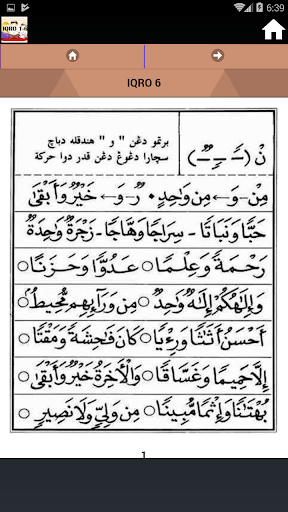 6:39
IQRO 1-6
IQRO 6
نْ ( ــًــ ــٍــ ــٌــ )
برتمو دغن " و " هندقله دباچ
سچارا دغوڠ دغن قدر دوا حركة
مِنْ - وَ ← مِن وَاحِدٍ • رٌ - وَ ← خَيْرٌ وَأَبْقَىٰ
حَبًّا وَنَبَاتًا - سِرَاجًا وَهَّاجًا - زَجْرَةٌ وَاحِدَةٌ
رَحْمَةً وَعِلْمًا ○ عَدُوًّا وَحَزَنًا ○
وَإِلَٰهُكُمْ إِلَٰهٌ وَاحِدٌ ○ مِن وَرَآءِهِم مُّحِيطٌ ○
أَحْسَنُ أَثَٰثًا وَرِءْيًا ○ كَانَ فَٰحِشَةً وَمَقْتًا
إِلَّا حَمِيمًا وَغَسَّاقًا ○ وَالْأَخِرَةُ خَيْرٌ وَأَبْقَىٰ ○
بُهْتَٰنًا وَإِثْمًا مُّبِينًا ○ مِن وَلِيٍّ وَلَا نَصِيرٍ ○
1